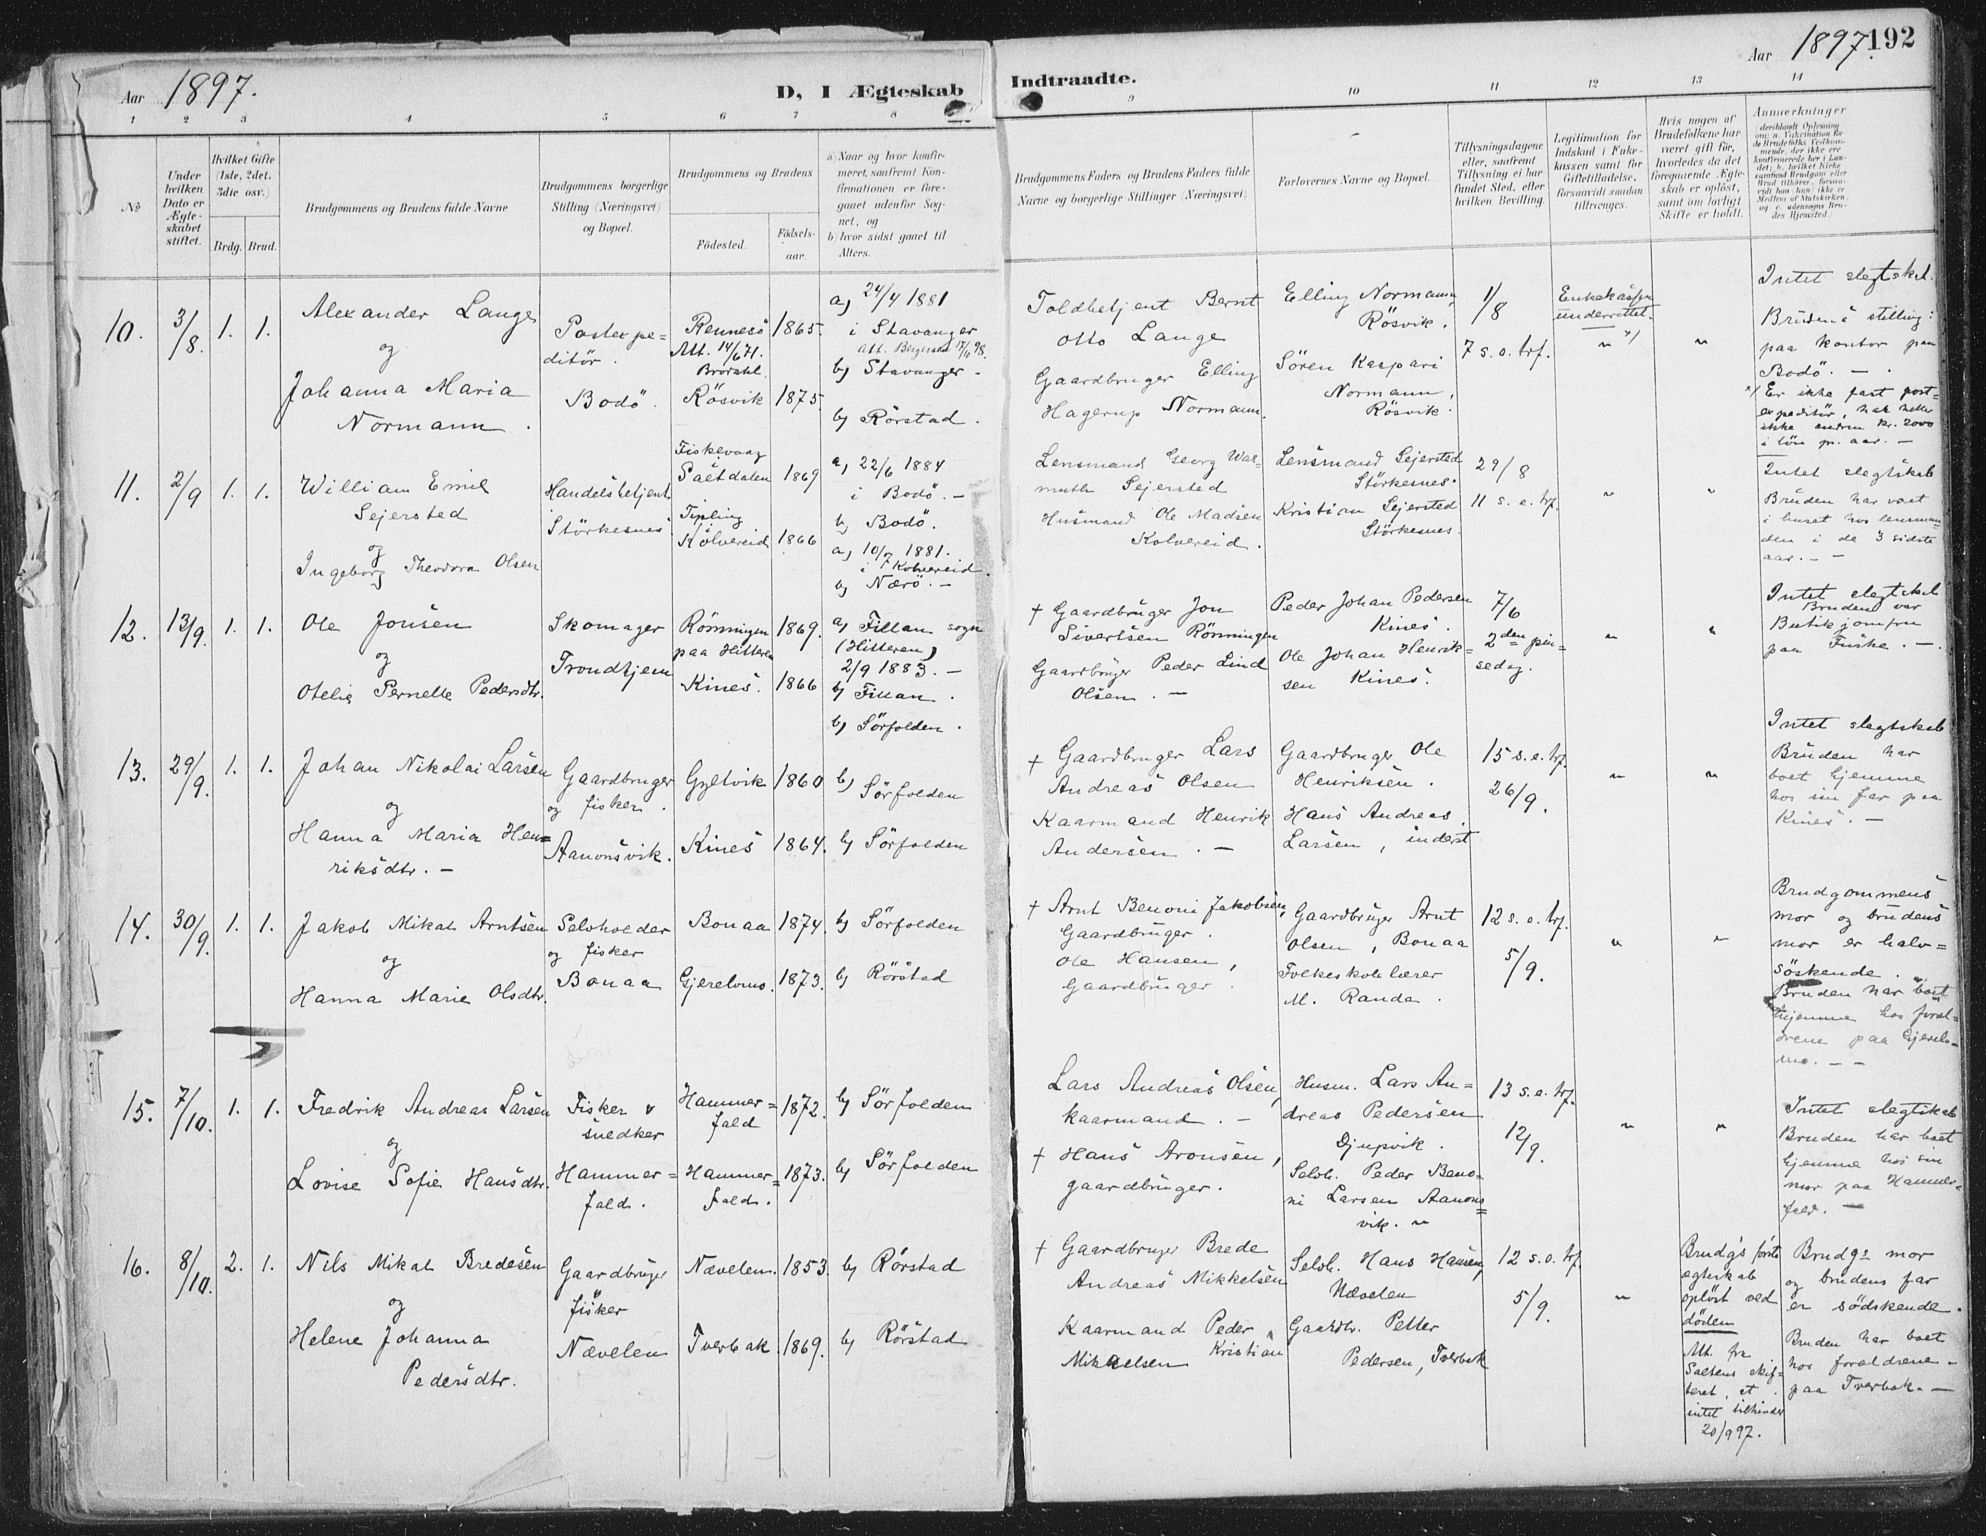 Aar 1897.
D, I Ægteskab
Indtraadte.
Aar 1897. 192
1 2 3 4 5 6 7 8 9 10 11 12 13 14
No
Under hvilken Dato er Ægteskabet stiftet.
Hvilket Gifte (1ste, 2det. 3die osv.)
Brdg. Brud.
Brudgommens og Brudens fulde Navne
Brudgommens borgerlige Stilling (Næringsvei) og Bopæl.
Brudgommens og Brudens
Födested. Födsels-aar.
a) Naar og hvor konfirmeret, saafremt Konfirmationen er foregaaet udenfor Sognet, og
b) hvor sidst gaaet til Alters.
Brudgommens Faders og Brudens Faders fulde Navne og borgerlige Stillinger (Næringsvei)
Forlovernes Navne og Bopæl.
Tillysningsdagene eller, saafremt Tillysning ei har fundet Sted, efter hvilken Bevilling.
Legitimation for Indskud i Enkekassen samt for Giftetilladelse, forsaavidt saadan tiltrænges.
Hvis nogen af Brudefolkene har været gift för, hvorledes da det foregaaende Ægteskab er oplöst, samt om lovligt Skifte er holdt.
Anmerkninger
10. 3/8. 1. 1.
Alexander Lange
og
Johanna Maria
Normann.
Postexpe-
ditör.
Bodö.
Rennesö 1865.
Att. 14/6 71.
Rösvik 1875.
a) 24/4 1881
i Stavanger
b) Stavanger.
b) Rörstad.
Toldbetjent Bernt
Otto Lange
Gaardbruger Elling
Hagerup Normann.
Elling Normann,
Rösvik.
Sören Kaspari
Normann,
Rösvik.
1/8
7 s. e. trf.
Enkekassen
underrettet.
" x) "
Intet slegtskab.
Brudens stilling:
paa kontor paa
Bodö. —
x) Er ikke fast post-
expeditör, har heller
ikke endnu kr. 2000
i lön pr. aar. —
11. 2/9 1. 1.
William Emil
Sejersted
og
Ingeborg Theodora Olsen
Handelsbetjent
Störkesnes
Fiskevaag
Saltdalen 1869
Kolvereid 1866
a) 22/6 1884
i Bodö. —
b) Bodö.
a) 10/7 1881.
i Kolvereid.
b) Nærö. —
Lensmand Georg Was-
muth Sejersted
Husmand Ole Madsen
Kolvereid.
Lensmand Sejersted
Störkesnes.
Kristian Sejersted
Störkesnes.
29/8
11 s. e. trf.
" "
Intet slegtskab
Bruden har været
i huset hos lensman-
den i de 3 sidste
aar. —
12. 13/9. 1. 1.
Ole Jonsen
og
Otelie Pernelle Pedersdtr.
Skomager
Trondhjem
Rönningen 1869.
paa Hitteren
Kines. 1866
a) Fillan sogn
(Hitteren)
2/9 1883. —
b) Fillan.
b) Sörfolden.
† Gaardbruger Jon
Sivertsen Rönningen
Gaardbruger Peder Lind
Olsen. —
Peder Johan Pedersen
Kines.
Ole Johan Henrik-
sen Kines.
7/6
2den pin-
sedag.
" "
Intet slegtskab
Bruden var
Butikjomfru
paa Fuske. —
13. 29/9. 1. 1.
Johan Nikolai Larsen
og
Hanna Maria Hen-
riksdtr. —
Gaardbruger
og fisker.
Aanonsvik.
Gyltvik 1860
Kines 1864.
b) Sörfolden
b) Sörfolden
† Gaardbruger Lars
Andreas Olsen
Kaarmand Henrik
Andersen. —
Gaardbruger Ole
Henriksen.
Hans Andreas
Larsen, inderst
15 s. e. trf.
26/9.
" "
Intet slegtskab
Bruden har
boet hjemme
hos sin far paa
Kines. —
14. 30/9. 1. 1.
Jakob Mikal Arntsen
og
Hanna Marie Olsdtr.
Selveholder
og fisker
Bonaa
Bonaa 1874.
Gjerelvmo. 1873.
b) Sörfolden
b) Rörstad
† Arnt Benoni Jakobsen,
Gaardbruger.
Ole Hansen,
Gaardbruger.
Gaardbruger Arnt
Olsen, Bonaa
Folkeskolelærer
M. Randa.
12 s. e. trf.
5/9.
" "
Brudgommens
mor og brudens
mor er halv-
söskende.
Bruden har boet
hjemme hos foræl-
drene paa Gjerelv-
mo. —
15. 7/10. 1. 1.
Fredrik Andreas Larsen
og
Lovise Sofie Hansdtr.
Fisker &
snedker
Hammer-
fald.
Hammer- 1872.
fald
Hammer- 1873.
fald.
b) Sörfolden
b) Sörfolden
Lars Andreas Olsen,
kaarmand. —
† Hans Aronsen,
gaardbruger.
Husm. Lars An-
dreas Pedersen
Djupvik.
Selvb. Peder Beno-
ni Larsen Aanons-
vik. "
13 s. e. trf.
12/9.
" "
Intet slegtskab
Bruden har boet
hjemme hos sin
mor paa Hammer-
fald. —
16. 8/10. 2. 1.
Nils Mikal Bredesen
og
Helene Johanna
Pedersdtr.
Gaardbruger
& fisker
Nævelen
Nævelen. 1853.
Tverbak. 1869.
b) Rörstad
b) Rörstad
† Gaardbruger Brede
Andreas Mikkelsen
Kaarmand Peder
Kristian
Mikkelsen
Selvb. Hans Hansen,
Nævelen
Gaardbr. Petter
Pedersen, Tverbak
12 s. e. trf.
5/9.
"
Brudg's förste
ægteskab
oplöst ved
döden
Att. fra
Saltens skif-
teret, at
intet tilhinder
20/9 97.
Brudgs mor
og brudens far
er södskende.
Bruden har boet
hos forældrene
paa Tverbak. —